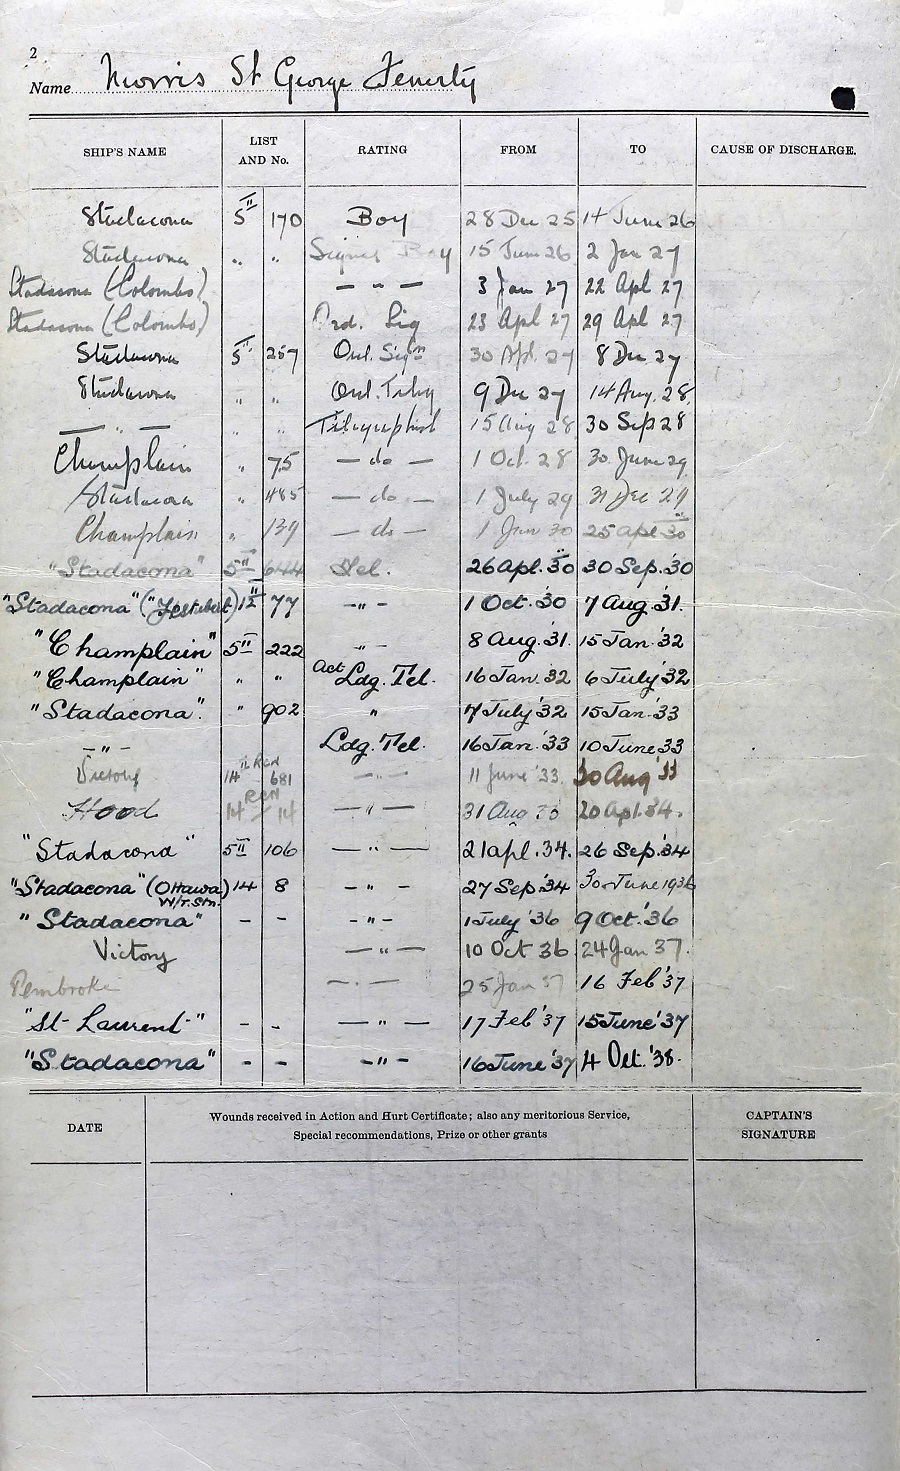 2
Name Morris St George Fenerty
SHIP'S NAME LIST AND No. RATING FROM TO CAUSE OF DISCHARGE.
Stadacona 5II 170 Boy 28 Dec 25 14 June 26
Stadacona " " Signal Boy 15 June 26 2 Jan 27
Stadacona (Colombo) — " — 3 Jan 27 22 Apl 27
Stadacona (Colombo) Ord. Sig 23 Apl 27 29 Apl 27
Stadacona 5II 257 Ord. Sign 30 Apl. 27 8 Dec 27
Stadacona " " Ord. Telig 9 Dec 27 14 Aug. 28
— " — " " Telegraphist 15 Aug 28 30 Sep 28
Champlain " 75 — do — 1 Oct. 28 30 June 29
Stadacona " 485 — do — 1 July 29 31 Dec 29
Champlain " 139 — do — 1 Jan 30 25 Apl 30
"Stadacona" 5II 644 Tel. 26 Apl. 30 30 Sep. '30
"Stadacona" ("Festubert") 12II 77 - " - 1 Oct. '30 7 Aug. '31.
"Champlain" 5II 222 - " - 8 Aug. '31 15 Jan. '32
"Champlain" " " Act Ldg. Tel. 16 Jan. '32 6 July '32
"Stadacona". " 902 " 7 July '32 15 Jan. '33
- " - Ldg. Tel. 16 Jan. '33 10 June '33
Victory 14II RCN 681 - " - 11 June '33. 30 Aug '33
Hood 14 RCN 14 — " — 31 Aug 33 20 Apl. 34.
"Stadacona" 5II 106 — " — 21 Apl. 34. 26 Sep. '34
"Stadacona" (Ottawa W/T. Stn.) 14 8 - " - 27 Sep. '34 30 June 1936
"Stadacona" - - - " - 1 July '36 9 Oct. '36
Victory — " — 10 Oct 36 24 Jan 37.
Pembroke — " — 25 Jan 37 16 Feb '37
"St Laurent" - - — " — 17 Feb '37 15 June '37
"Stadacona" - - - " - 16 June '37 4 Oct. '38.
DATE Wounds received in Action and Hurt Certificate; also any meritorious Service, Special recommendations, Prize or other grants CAPTAIN'S SIGNATURE